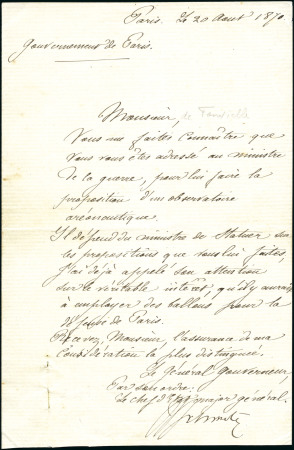 Paris, le 20 Août 1870.
Gouvernement de Paris.
Monsieur, de Fonvielle
Vous me faites connaître que
vous vous êtes adressé au ministre
de la guerre, pour lui faire la
proposition d'un observatoire
aréonautique.
Il dépend du ministre de statuer sur
les propositions que vous lui faites,
j'ai déjà appelé son attention
sur le véritable intérêt, qu'il y aurait
à employer des ballons pour la
défense de Paris.
Recevez, Monsieur, l'assurance de ma
considération la plus distinguée.
Le Général Gouverneur,
Par son ordre:
Le chef d'Etat major général.